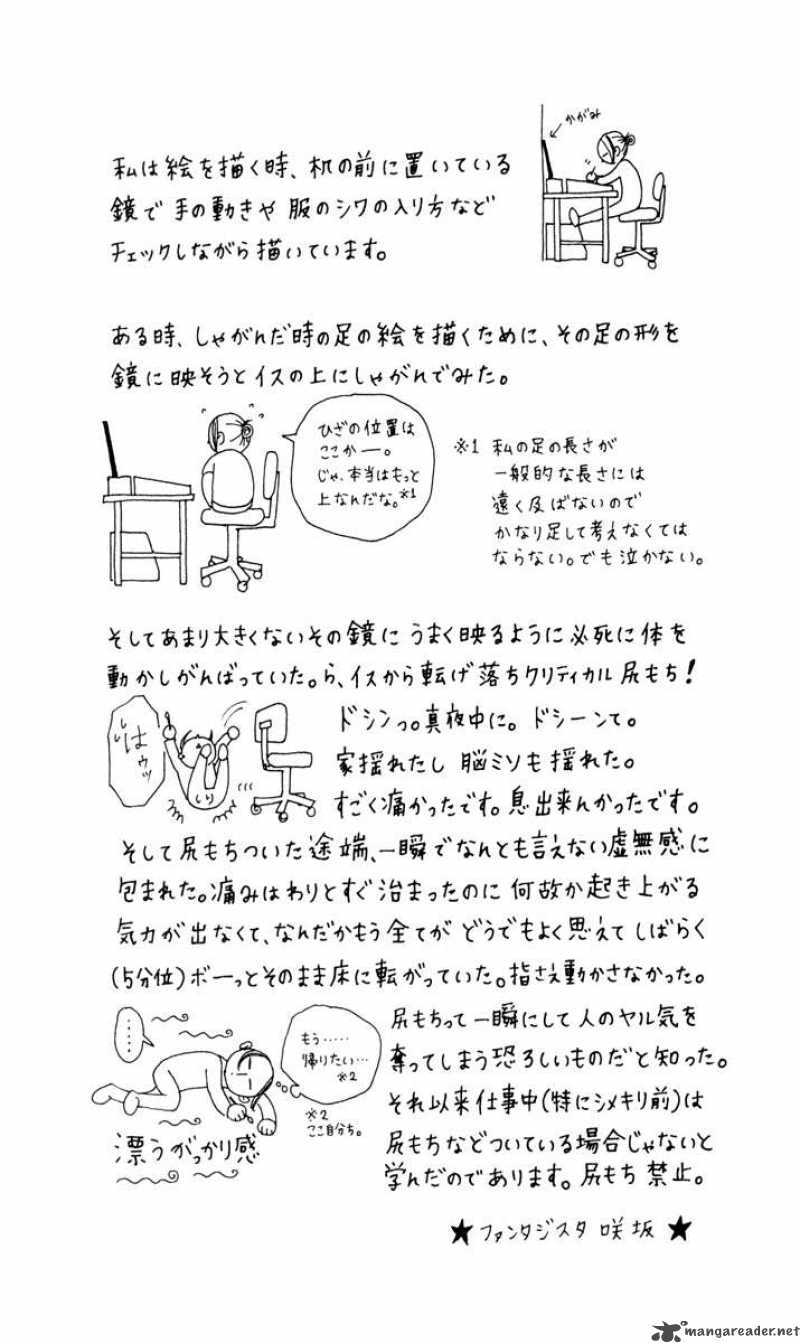 かがみ
私は絵を描く時、机の前に置いている
鏡で手の動きや服のシワの入り方など
チェックしながら描いています。
ある時、しゃがんだ時の足の絵を描くために、その足の形を
鏡に映そうとイスの上にしゃがんでみた。
ひざの位置は
ここかー。
じゃ、本当はもっと
上なんだな。※1
※1 私の足の長さが
一般的な長さには
遠く及ばないので
かなり足して考えなくては
ならない。でも泣かない。
そしてあまり大きくないその鏡にうまく映るように必死に体を
動かしがんばっていた。ら、イスから転げ落ちクリティカル尻もち!
はウッ
しり
ドシンっ。真夜中に。ドシーンて。
家揺れたし脳ミソも揺れた。
すごく痛かったです。息出来んかったです。
そして尻もちついた途端、一瞬でなんとも言えない虚無感に
包まれた。痛みはわりとすぐ治まったのに何故か起き上がる
気力が出なくて、なんだかもう全てがどうでもよく思えてしばらく
(5分位)ボーっとそのまま床に転がっていた。指さえ動かさなかった。
・・・・・
もう・・・・・
帰りたい…
※2
※2
ここ自分ち。
漂うがっかり感
尻もちって一瞬にして人のヤル気を
奪ってしまう恐ろしいものだと知った。
それ以来仕事中(特にシメキリ前)は
尻もちなどついている場合じゃないと
学んだのであります。尻もち禁止。
★ファンタジスタ咲坂★
mangareader.net